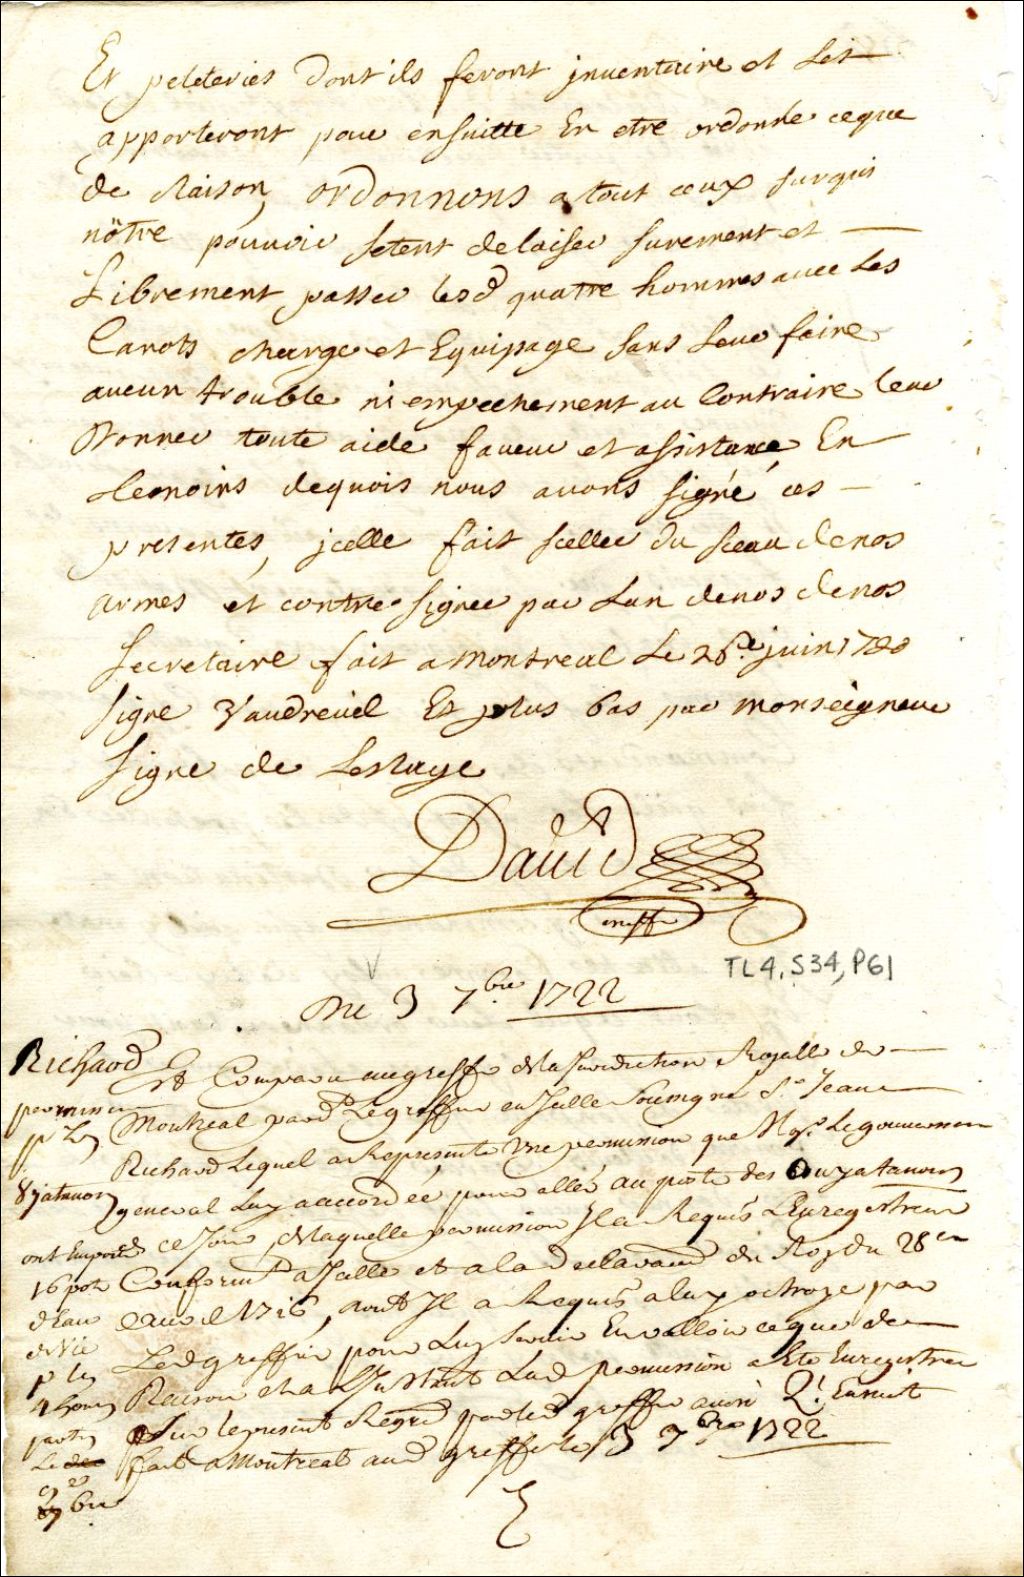 Et peleteries Dont ils feront jnventaire et Les
apporteront pour ensuitte En etre ordonné ceque
de Raison, ordonnons a tout ceux surquis
nôtre pouvoir setent delaisser surement et
Librement passer lesd quatre hommes avec Les
Canots charge et Equipage sans Leur faire
aucun trouble ni empechement au Contraire leur
Donner toute aide faveur et assistance, En
temoins dequois nous avons signé ces
presentes, jcelle fait scellee du sceau denos
armes et contre signee par Lun denos denos
Secretaire fait a Montreal Le 26e juin 1720
signe Vaudreuil Et plus bas par monseigneur
signe de Lestage
David
greffr
TL4, S34, P61
Du 3 7bre 1722
Richard
permission
pr Les
8yatanons
ont Emporté
16 pots
dEau
de Vie
pr les
4 homs
partis
Le
7bre
Est Comparu augreffe de la Jurisdiction Royalle de
Montreal pard Le greffier en Jcelle Soussigné Sr Jean
Richard Lequel a Represente Une permission que Mgr Le gouverneur
general Luy a accordée pour aller au poste des Ouyatanons
ce Jour, de laquelle permission Jl a Requis LEnregistrement
Conformt a Jcelle et a la Declaraon du Roy du 28en
avril 1716, dont Jl a Requis a luy octroye par
Led greffier pour Luy servir Et valloir ce que de
Raison et a LJnstant Lad permission a Ete Enregistrée
Sur le present Regre par led greffier ainsi Ql Ensuit
fait a Montreal aud greffe le 3 7bre 1722